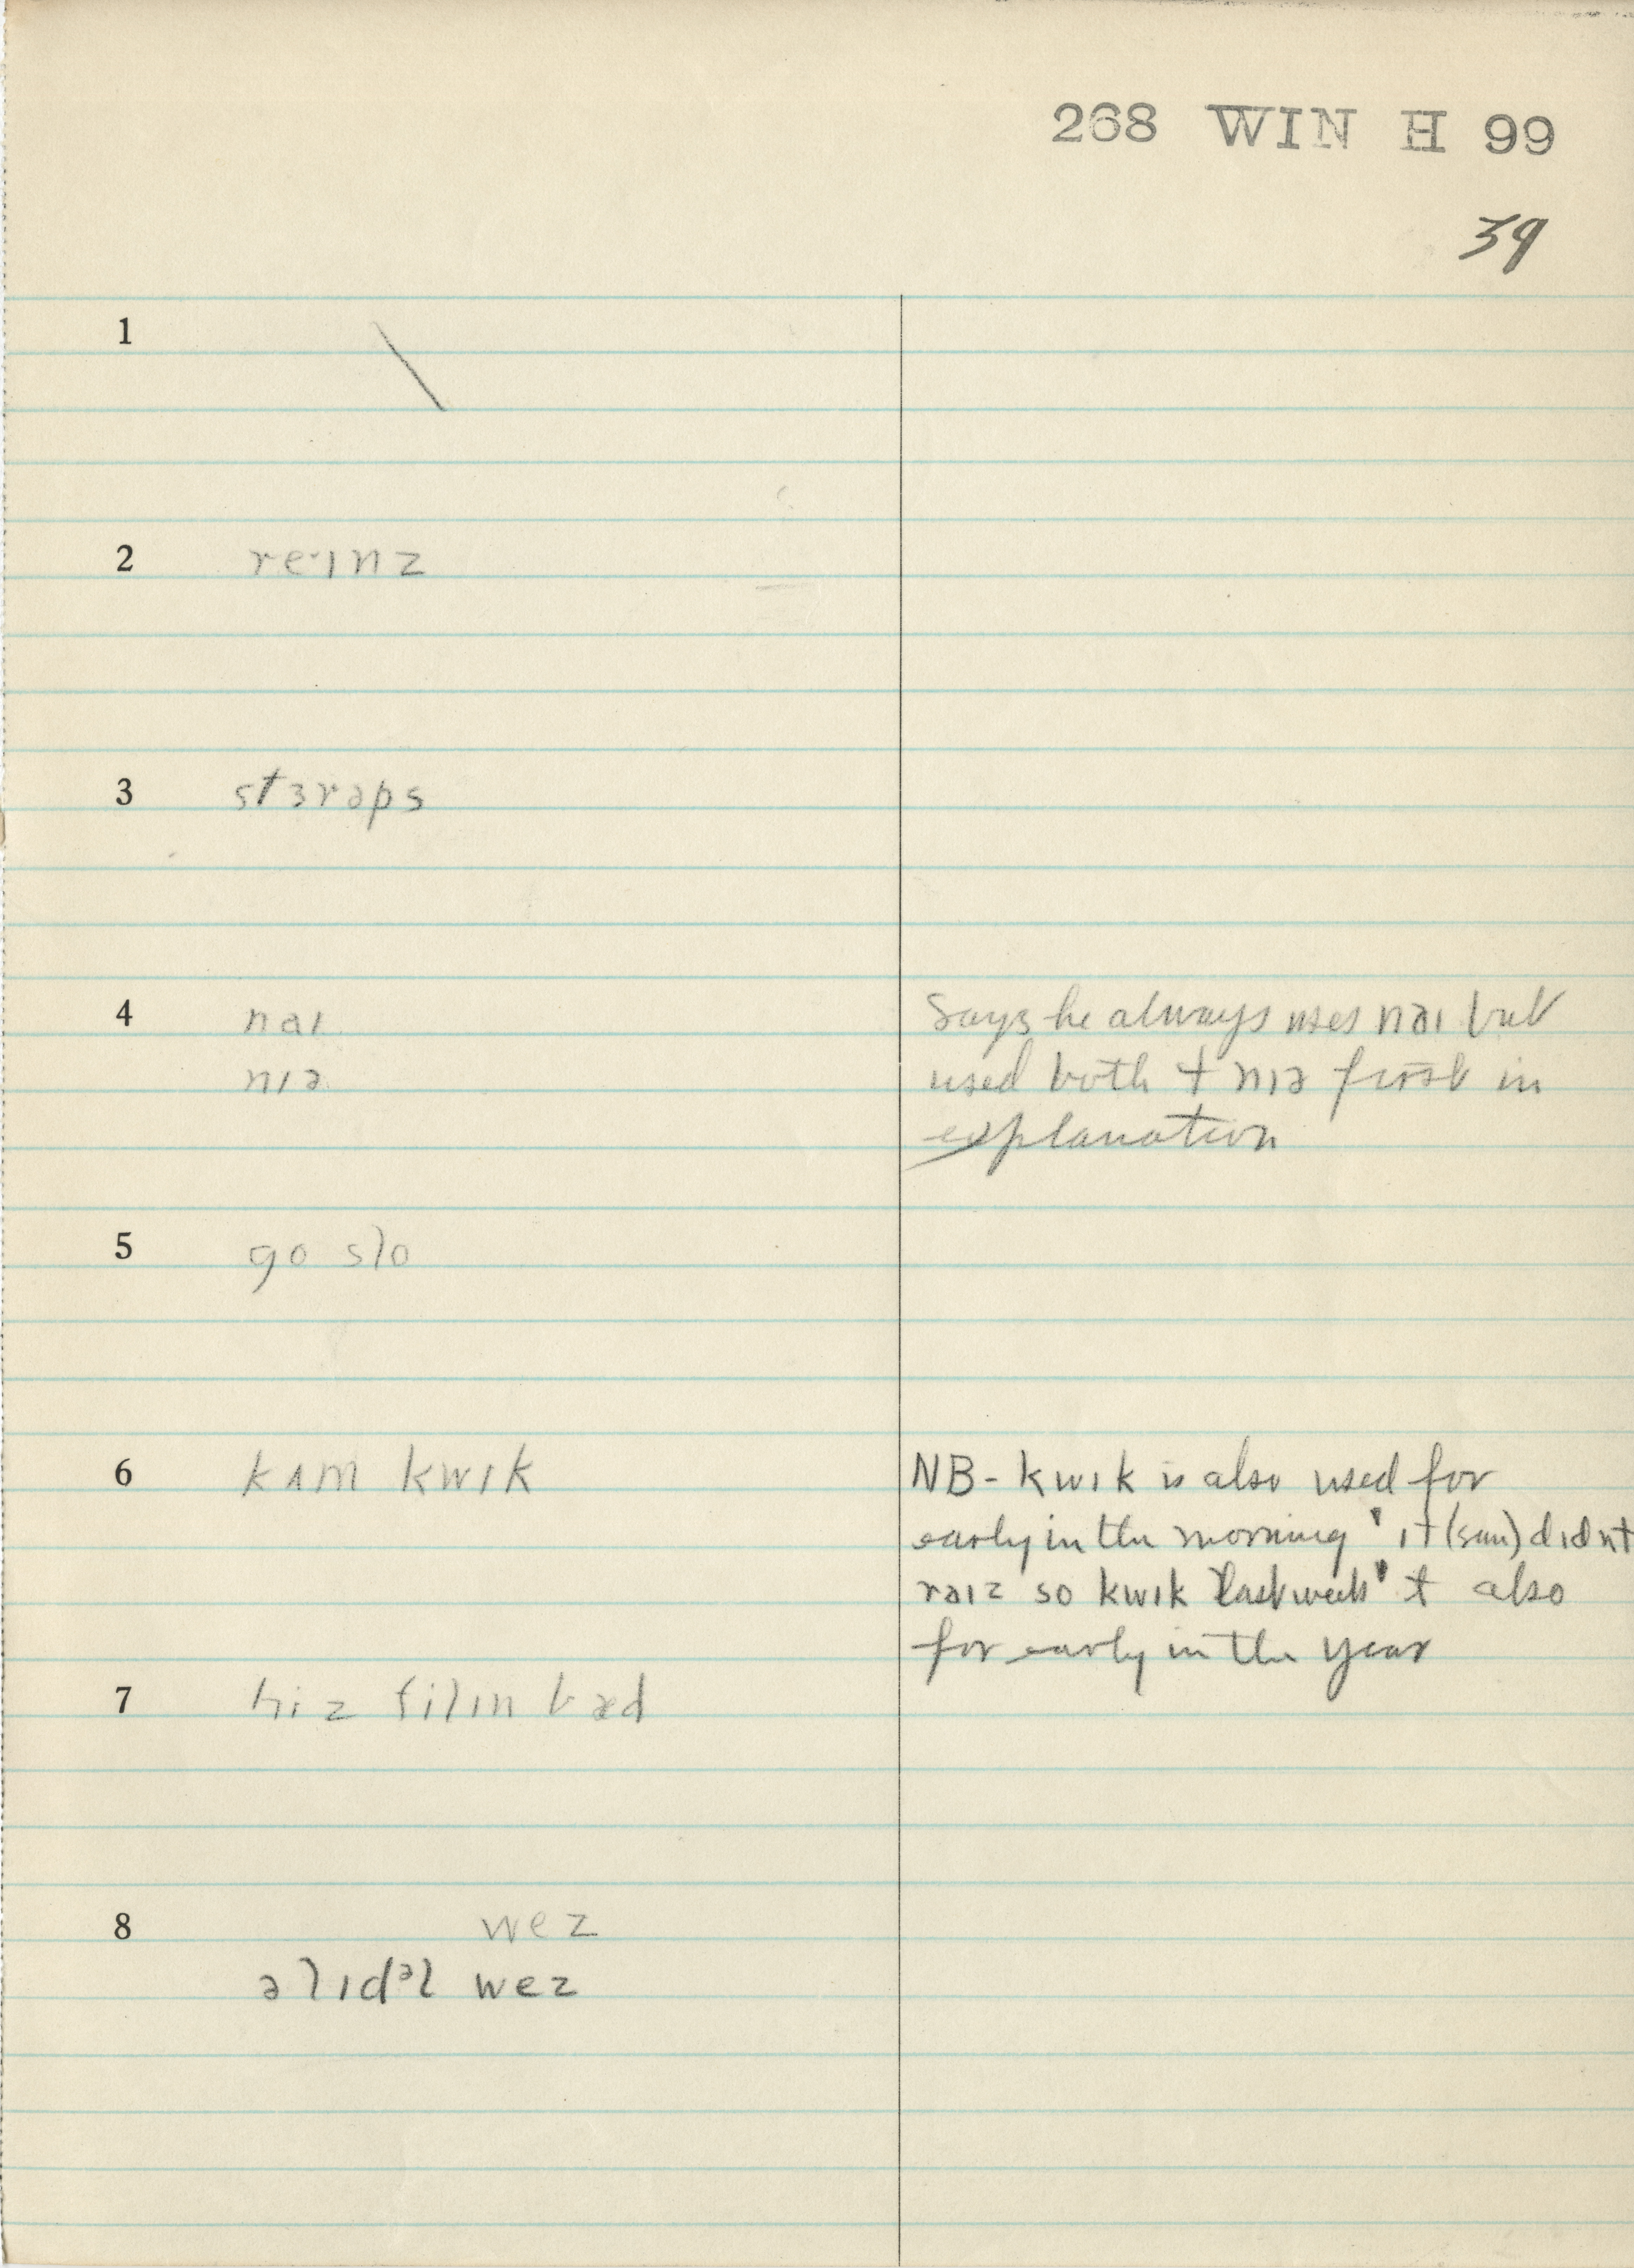 268 WIN H 99
39
1
2 re·ɪnz
3 stɜrəps
4 naɪ
Says he always uses naɪ but
nɪə
used both + nɪə first in
explanation
5 go slo
6 kʌm kwɪk
NB - kwɪk is also used for
early in the morning ' ɪt (sun) dɪdnt
raɪz so kwɪk last week' + also
for early in the year
7 hiz filɪn bæd
8 wez
əlɪdᵊl wez